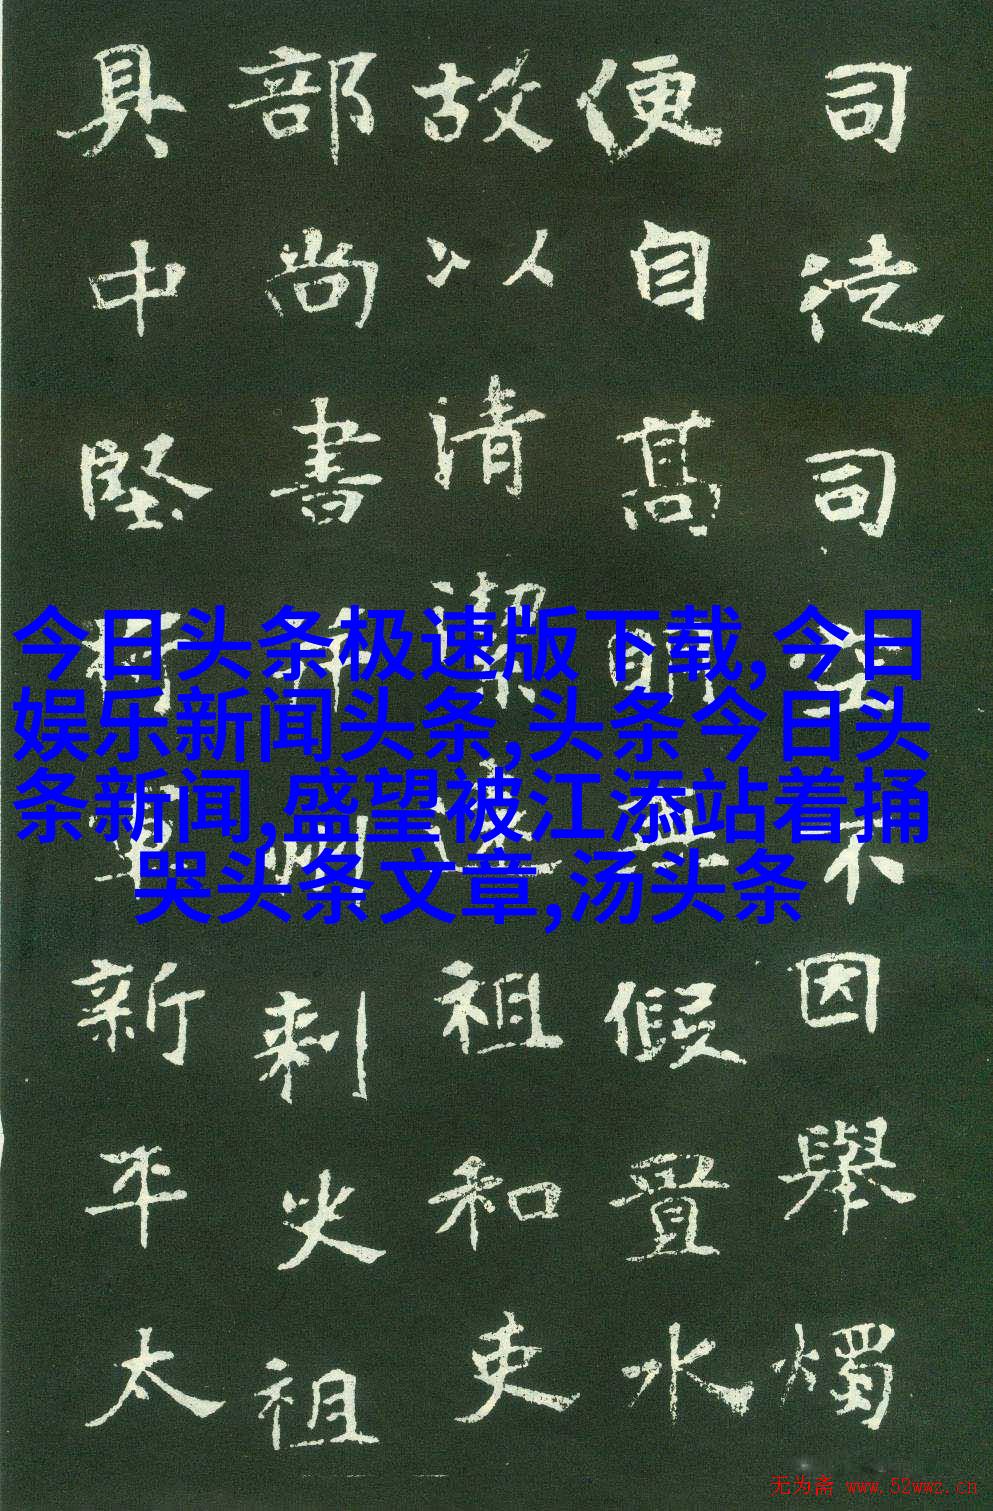 今日头条极速版下载,今日
娱乐新闻头条,头条今日头
条新闻,盛望被江添站着捅
哭头条文章,汤头条
司徒司空不因舉燭
便自高明無假置水
故以清潔祖和吏
部尚書州刺史祖
具中堅將軍新平太
无为斋 www.52wwz.cn